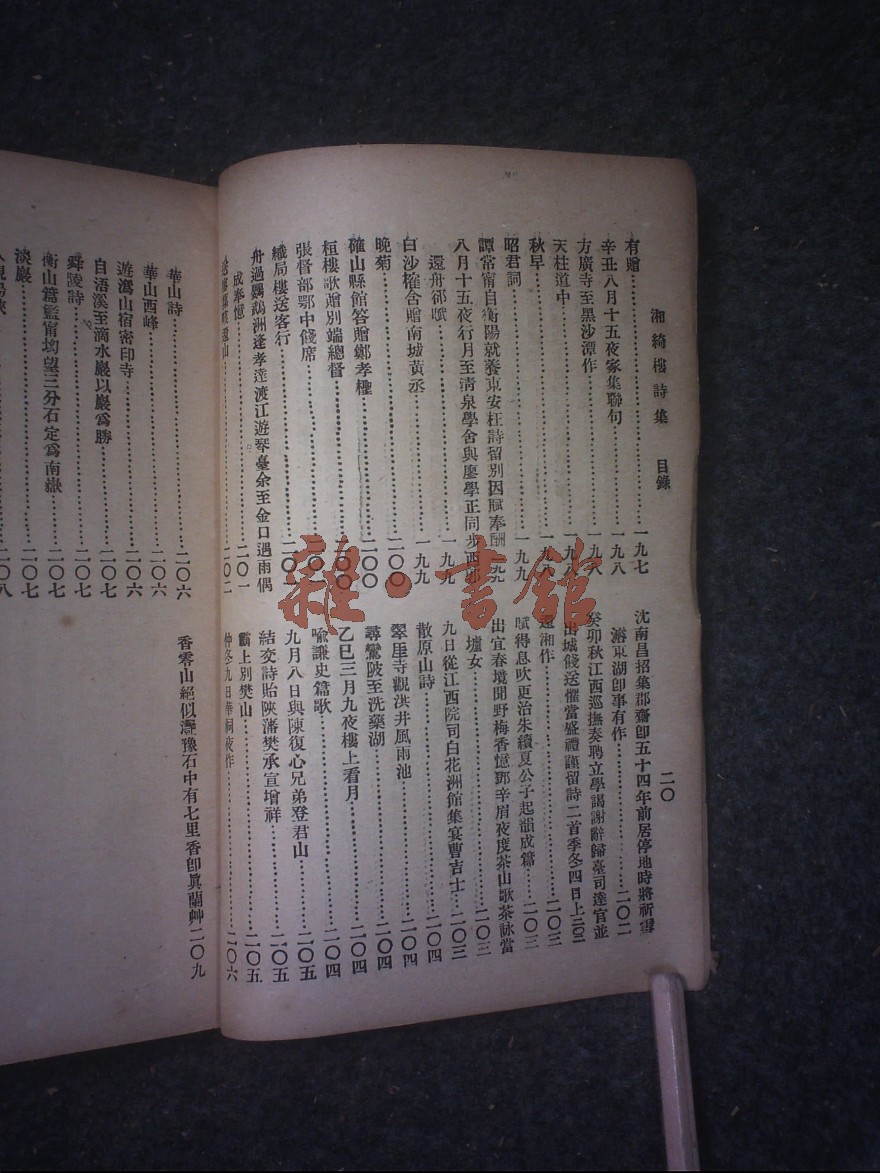 湘綺樓詩集　目錄
二〇
有贈…………一九七
辛丑八月十五夜家集聯句…………一九八
方廣寺至黑沙潭作…………一九八
天柱道中…………一九八
秋早…………一九八
昭君詞…………一九九
譚常甯自衡陽就養東安枉詩留別因賦奉酬…一九九
八月十五夜行月至清泉學舍與廖學正同步西湖
還舟邻賦…………一九九
白沙榷舍贈南城黃丞…………一九九
晚菊…………二〇〇
確山縣館答贈鄭孝檉…………二〇〇
桓樓歌贈別端總督…………二〇〇
張督部鄂中餞席…………二〇一
織局樓送客行…………二〇一
舟過鸚鵡洲逢孝達渡江遊琴臺余至金口遇雨偶
成奉憶…………二〇一
…………二〇二
沈南昌招集郡齋卽五十四年前居停地時將祈雪
…東湖卽事有作…………二〇二
癸卯秋江西巡撫奏聘立學謁謝辭歸臺司達官並
出城餞送懼當盛禮謹留詩二首季冬四日上…二〇二
還湘作…………二〇三
賦得息吹更治朱續夏公子起韻成篇…………二〇三
出宜春境聞野梅香憶鄧辛眉夜度茶山歌茶詠當
壚女…………二〇三
九日從江西院司白花洲館集宴曹吉士…………二〇三
散原山詩…………二〇四
翠里寺觀洪井風雨池…………二〇四
尋鸞陂至洗藥湖…………二〇四
乙巳三月九夜樓上看月…………二〇四
喻謙史篇歌…………二〇四
九月八日與陳復心兄弟登君山…………二〇五
結交詩貽陝藩樊承宣增祥…………二〇五
霸上別樊山…………二〇五
仲冬九日華祠夜作…………二〇六
華山詩…………二〇六
華山西峰…………二〇六
遊溈山宿密印寺…………二〇六
自浯溪至滴水巖以巖爲勝…………二〇七
舜陵詩…………二〇七
衡山篇監甯均望三分石定爲南嶽…………二〇七
淡巖…………二〇七
…………二〇八
香零山絕似灩豫石中有七里香卽眞蘭艸 二〇九
雜·書館